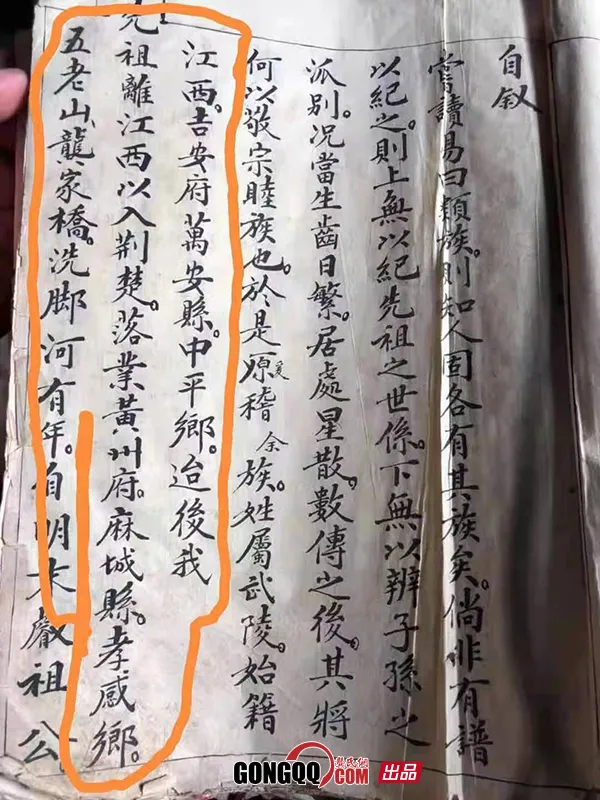 自叙
嘗讀易曰類族。則知人固各有其族矣。倘非有譜
以紀之。則上無以紀先祖之世係。下無以辨子孫之
派别。况當生齒日繁。居處星散。數傳之後。其將
何以敬宗睦族也。於是爰原稽余族。姓屬武陵。始籍
江西。吉安府萬安縣。中平鄉。迨後我
先祖離江西以入荆楚。落業黄州府。麻城縣。孝感鄉。
五老山龔家橋。洗脚河有年。自明末嚴祖公
GONGQQ.COM 龔氏網 出品